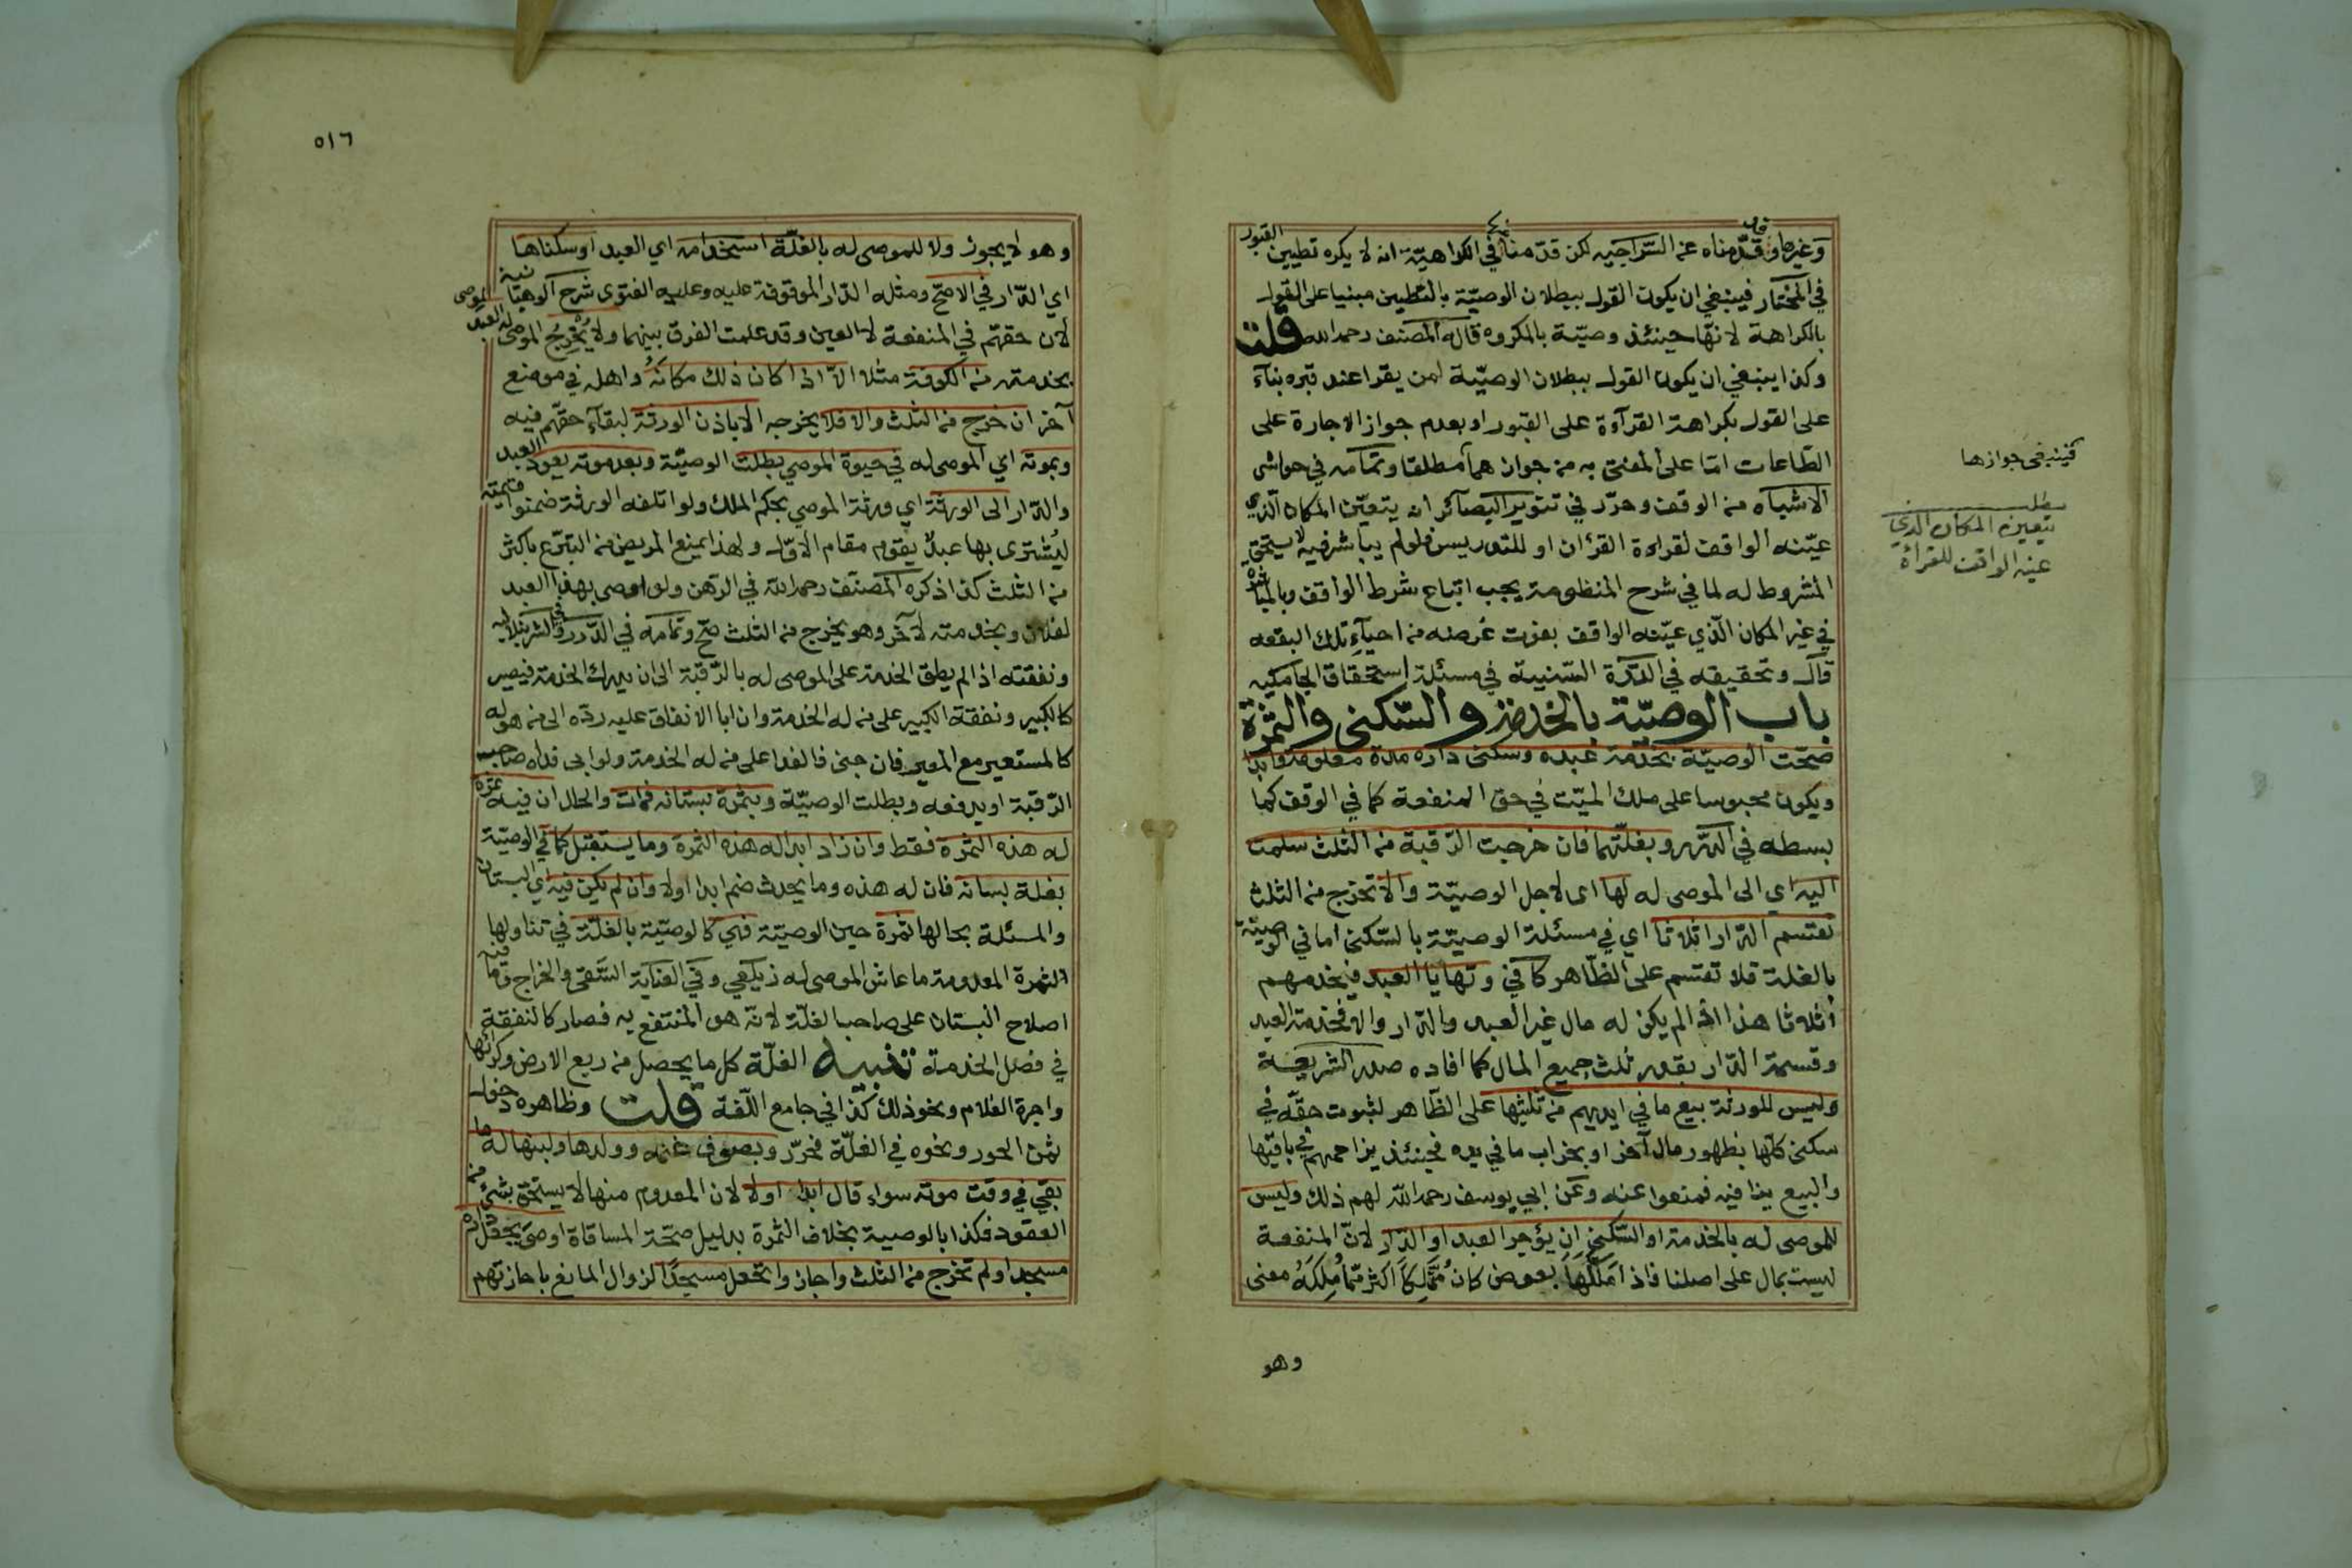 وغيرها وقدمناه عن السراجية لكن قدمنا في الكراهية انه لا يكره تطيين القبور
في المختار فينبغي ان يكون القول ببطلان الوصيّة بالتطيين مبنيا على القول
بالكراهة لانها حينئذ وصيّة بالمكروه قاله المصنف رحمه الله قلت
وكذا ينبغي ان يكون القول ببطلان الوصيّة لمن يقرا عند قبره بناء
على القول بكراهة القرآءة على القبور او بعدم جواز الاجارة على
الطّاعات امّا على المفتى به من جوازهما مطلقا وتمامه في حواشي
الاشباه من الوقف وحرّر في تنوير البصآئر انه يتعيّن المكان الّذي
عيّنه الواقف لقراءة القرءان او للتدريس فلو لم يباشر فيه لا يستحق
المشروط له لما في شرح المنظومة يجب اتباع شرط الواقف وبالمباشرة
في غير المكان الّذي عيّنه الواقف يفوت غرضه من احيآء تلك البقعه
قال وتحقيقه في الدّرّة السّنية في مسئلة استحقاق الجامكيه
باب الوصيّة بالخدمة والسّكنى والثمرة
صحّت الوصيّة بخدمة عبده وسكنى داره مدة معلومة وابدا
ويكون محبوسا على ملك الميّت في حق المنفعة كما في الوقف كما
بسطه في الدّرر وبغلّتهما فان خرجت الرّقبة من الثلث سلمت
اليه اي الى الموصى له لها اى لاجل الوصيّة والا تخرج من الثلث
تقتسم الدّار اثلاثا اي في مسئلة الوصيّة بالسّكنى اما في الوصيّة
بالغلة فلا تقتسم على الظّاهر كافي وتهايا العبد فيخدمهم
أثلاثا هذا اذا لم يكن له مال غير العبد والدّار والا فخدمة العبد
وقسمة الدّار بقدر ثلث جميع المال كما افاده صدر الشريعة
وليس للورثة بيع ما في ايديهم من ثلثيها على الظّاهر لثبوت حقّه في
سكنى كلّها بظهور مال آخر او بخراب ما في يده فحينئذ يزاحمهم في باقيها
والبيع ينافيه فمنعوا عنه وعن ابي يوسف رحمه الله لهم ذلك وليس
للموصى له بالخدمة او السّكنى ان يؤجر العبد او الدّار لانّ المنفعة
ليست بمال على اصلنا فاذا مَلَّكَها بعوض كان مُمَلِكًا اكثر ممّا مُلِكَهُ معنى
وهو
فينبغي جوازها
مطلب
يتعين المكان الذي
عينه الواقف للقرأة
٥١٦
وهو لا يجوز ولا للموصى له بالغلّة استخدامه اي العبد او سكناها
اي الدّار في الاصحّ ومثله الدّار الموقوفة عليه وعليه الفتوى شرح الوهبانية
لان حقهّم في المنفعة لا العين وقد علمت الفرق بينهما ولا يُخْرِجُ الموصى له العبد الموصى
بخدمته من الكوفة مثلا الاّ اذا كان ذلك مكانهُ واهله في موضع
آخر ان خرج من الثلث والا فلا يخرجه الا باذن الورثة لبقآء حقّهم فيه
وبموته اي الموصى له في حيوة الموصي بطلت الوصيّة وبعد موته يعود العبد
والدّار الى الورثة اي ورثة الموصي بحكم الملك ولو اتلفه الورثة ضمنوا قيمته
ليُشترى بها عبدٌ يقوم مقام الاوّل ولهذا يمنع المريض من التبرّع باكثر
من الثلث كذا ذكره المصنّف رحمه الله في الرّهن ولو اوصى بهذا العبد
لفلان وبخدمته لآخر وهو يخرج من الثلث صحّ وتمامه في الدّرر وفي الشرنبلالية
ونفقته اذا لم يطق الخدمة على الموصى له بالرّقبة الى ان يدرك الخدمة فيصير
كالكبير ونفقة الكبير على من له الخدمة وان ابا الانفاق عليه ردّه الى من هو له
كالمستعير مع المعير فان جنى فالفدا على من له الخدمة ولو ابى فداه صاحب
الرّقبة او يدفعه وبطلت الوصيّة وبثمرة بستانه فمات والحال ان فيه ثمرة
له هذه الثمرة فقط وان زاد ابدا له هذه الثمرة وما يستقبل كما في الوصيّة
بغلة بستانه فان له هذه وما يحدث ضم ابدا اولا وان لم يكن فيه اي البستان
والمسئلة بحالها ثمرة حين الوصيّة فهي كالوصيّة بالغلّة في تناولها
الثمرة المعدومة ما عاش الموصى له زيلعي وفي العناية السَّقى والخراج وما فيه
اصلاح البستان على صاحب الغلّة لانّه هو المنتفع به فصار كالنفقة
في فصل الخدمة تنبيه الغلّة كل ما يحصل من ريع الارض وكرائها
واجرة الغلام ونحو ذلك كذا في جامع اللّغة قلت وظاهره دخول
ثمن الحور ونحوه في الغلّة فحرّر وبصوف غنمه وولدها ولبنها له ما
بقي في وقت موته سواء قال ابدا اولا لان المعدوم منها لا يستحق بشئ من
العقود فكذا بالوصية بخلاف الثمرة بدليل صحّة المساقاة اوصى بجعل داره
مسجدا ولم تخرج من الثلث واجازوا تجعل مسجدًا لزوال المانع باجازتهم